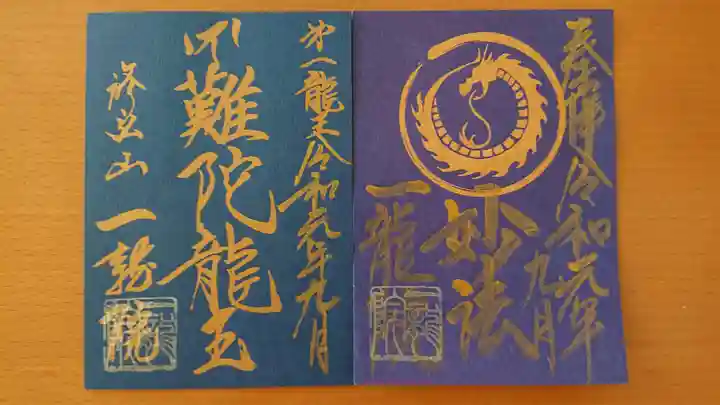 奉拝 令和元年
九月
妙法
一龍院
一龍院
第一龍王 令和元年九月
難陀龍王
山 一龍院
一龍院